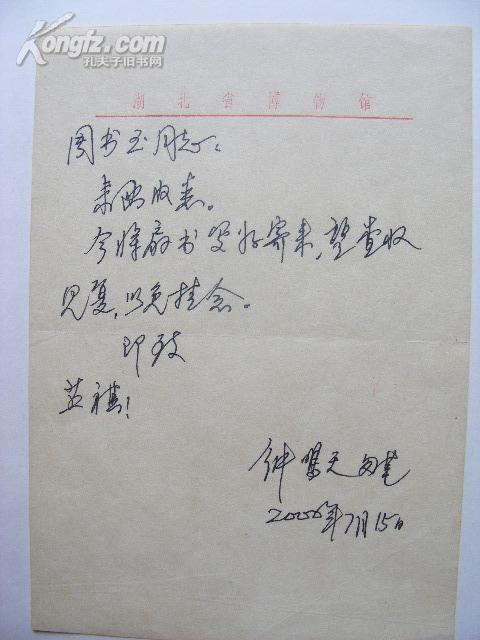 Kongfz.com
孔夫子旧书网
湖北省博物馆
周书玉同志:
来函收悉。
今将扇书写好寄来,望查收
见复,以免挂念。
即致
芸祺!
钟鸣天
2006年7月15日